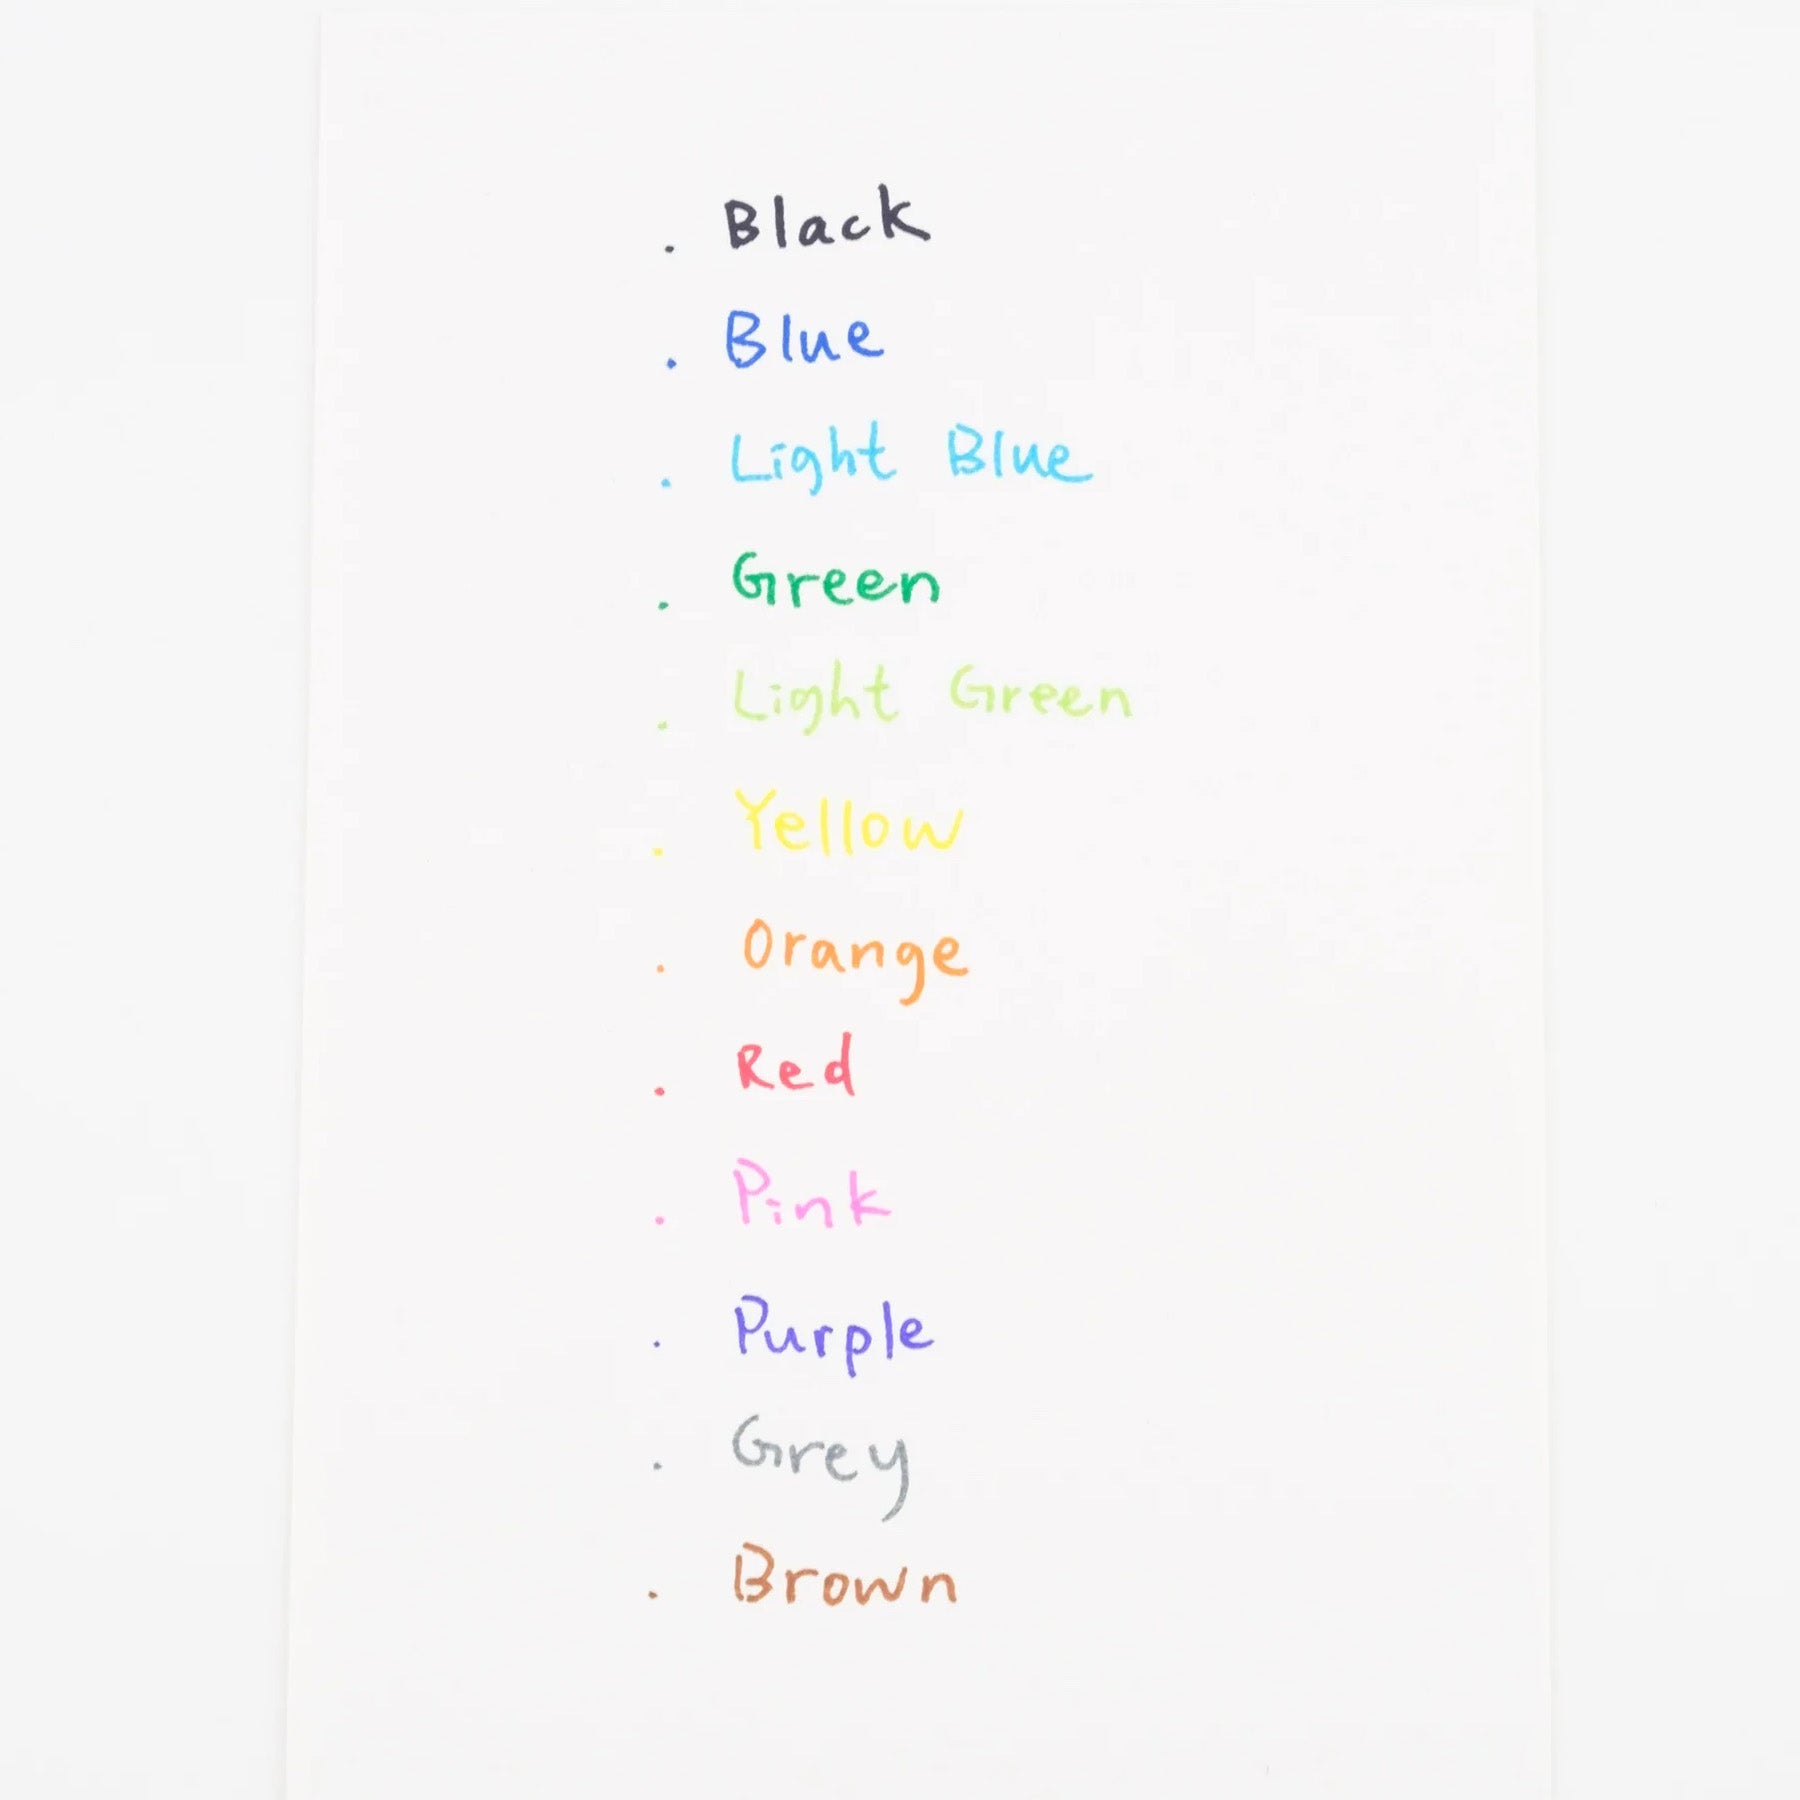 . Black
. Blue
. Light Blue
. Green
. Light Green
. Yellow
. Orange
. Red
. Pink
. Purple
. Grey
. Brown